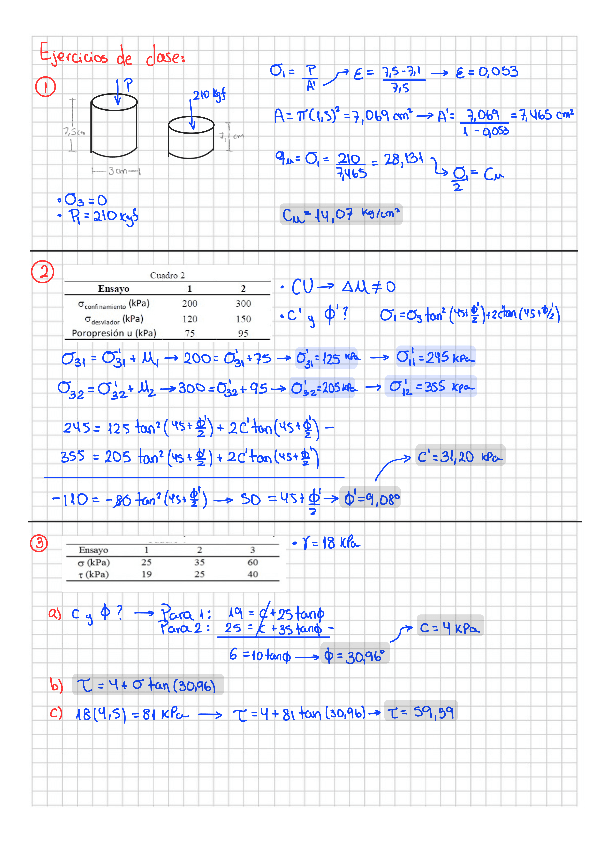 Ejercicios de clase:
1
P
7,5cm
3cm
210 kgf
7,1 cm
σ₁ = P/A' → ε = (7,5-7,1)/7,5 → ε = 0,053
A = π(1,5)² = 7,069 cm² → A' = 7,069/(1-0,053) = 7,465 cm²
qu = σ₁ = 210/7,465 = 28,131 → σ₁/2 = Cu
• σ₃ = 0
• P₁ = 210 kgf
Cu = 14,07 kg/cm²
2
Cuadro 2
Ensayo 1 2
σconfinamiento (kPa) 200 300
σdesviador (kPa) 120 150
Poropresión u (kPa) 75 95
• CU → Δμ ≠ 0
• C' y φ'? σ₁ = σ₃ tan²(45+φ'/2)+2c'tan(45+φ'/2)
σ₃₁ = σ₃₁' + μ₁ → 200 = σ₃₁' + 75 → σ₃₁' = 125 kPa → σ₁₁' = 245 kPa
σ₃₂ = σ₃₂' + μ₂ → 300 = σ₃₂' + 95 → σ₃₂' = 205 kPa → σ₁₂' = 355 kPa
245 = 125 tan²(45+φ'/2) + 2C'tan(45+φ'/2) −
355 = 205 tan²(45+φ'/2) + 2C'tan(45+φ'/2)
C' = 31,20 kPa
-110 = -80 tan²(45+φ'/2) → 50 = 45+φ'/2 → φ' = 9,08°
3
Ensayo 1 2 3
σ (kPa) 25 35 60
τ (kPa) 19 25 40
• γ = 18 kPa
a) C y φ? → Para 1: 19 = c + 25 tanφ
Para 2: 25 = c + 35 tanφ −
C = 4 kPa
6 = 10 tanφ → φ = 30,96°
b) τ = 4 + σ tan(30,96)
c) 18(4,5) = 81 kPa → τ = 4 + 81 tan(30,96) → τ = 59,59